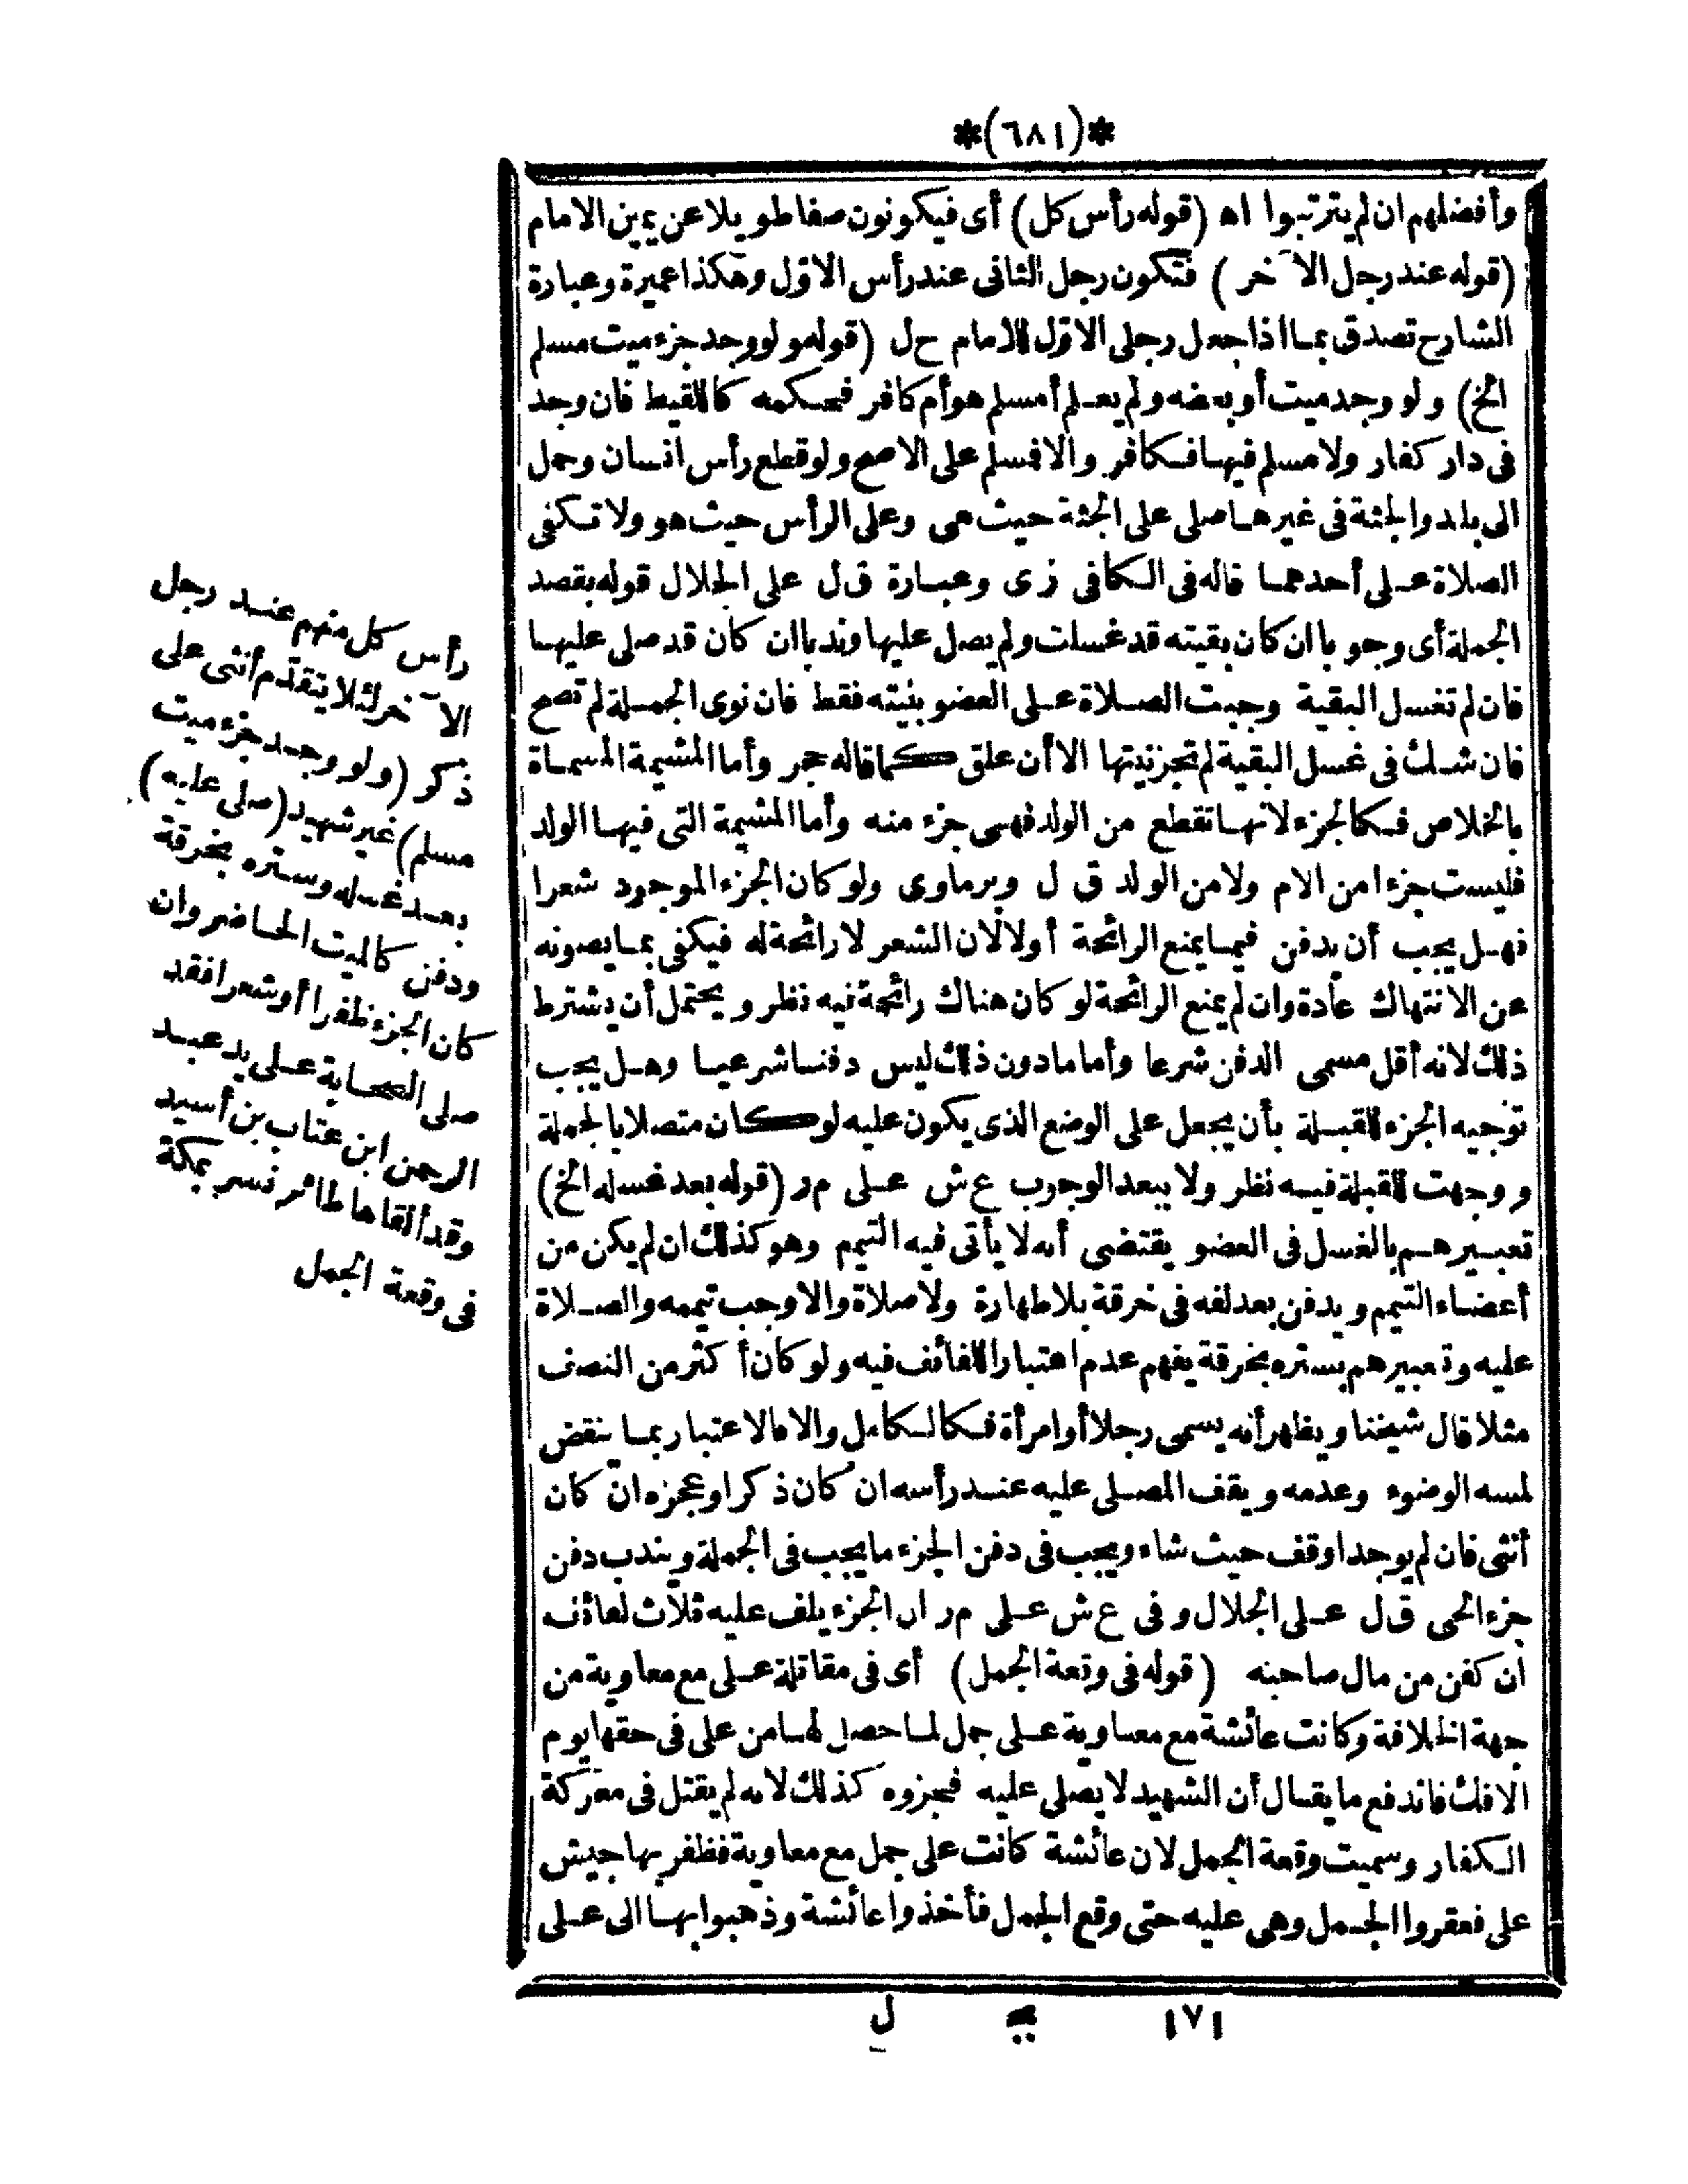 *(٦٨١)*
وأفضلهم ان لم يترتبوا اه (قوله رأس كل) أى فيكونون صفا طويلا عن يمين الامام
(قوله عند رجل الآخر) فتكون رجل الثانى عند رأس الاوّل وهكذا عميرة وعبارة
الشارح تصدق بما اذا جعل رجلى الاوّل للامام ح ل (قوله ولو وجد جزء ميت مسلم
الخ) ولو وجد ميت أو بعضه ولم يعلم أمسلم هو أم كافر فحكمه كاللقيط فان وجد
فى دار كفار ولا مسلم فيها فكافر والا فمسلم على الاصح ولو قطع رأس انسان وحمل
الى بلد والجثة فى غيرها صلى على الجثة حيث هى وعلى الرأس حيث هو ولا تكفى
الصلاة على أحدهما قاله فى الكافى ز ى وعبارة ق ل على الجلال قوله بقصد
الجملة أى وجوبا ان كان بقيته قد غسلت ولم يصل عليها وندبا ان كان قد صلى عليها
فان لم تغسل البقية وجبت الصلاة على العضو بنيته فقط فان نوى الجملة لم تصح
فان شك فى غسل البقية لم تجز نيتها الا أن علق كما قاله حجر وأما المشيمة المسماة
بالخلاص فكالجزء لانها تقطع من الولد فهى جزء منه وأما المشيمة التى فيها الولد
فليست جزءا من الام ولا من الولد ق ل وبرماوى ولو كان الجزء الموجود شعرا
فهل يجب أن يدفن فيما يمنع الرائحة أولا لان الشعر لا رائحة له فيكفى بما يصونه
عن الانتهاك عادة وان لم يمنع الرائحة لو كان هناك رائحة فيه نظر ويحتمل أن يشترط
ذلك لانه أقل مسمى الدفن شرعا وأما مادون ذلك ليس دفنا شرعيا وهل يجب
توجيه الجزء للقبلة بأن يجعل على الوضع الذى يكون عليه لو كان متصلا بالجملة
ووجهت للقبلة فيه نظر ولا يبعد الوجوب ع ش على م ر (قوله بعد غسله الخ)
تعبيرهم بالغسل فى العضو يقتضى أنه لا يأتى فيه التيمم وهو كذلك ان لم يكن من
أعضاء التيمم ويدفن بعد لفه فى خرقة بلا طهارة ولا صلاة والا وجب تيممه والصلاة
عليه وتعبيرهم بستره بخرقة يفهم عدم اعتبار اللفائف فيه ولو كان أكثر من النصف
مثلا قال شيخنا ويظهر أنه يسمى رجلا أو امرأة فكالكامل والا فالاعتبار بما ينقض
لمسه الوضوء وعدمه ويقف المصلى عليه عند رأسه ان كان ذكرا وعجزه ان كان
أنثى فان لم يوجدا وقف حيث شاء ويجب فى دفن الجزء ما يجب فى الجملة ويندب دفن
جزء الحى ق ل على الجلال وفى ع ش على م ر ان الجزء يلف عليه ثلاث لفائف
ان كفن من مال صاحبه (قوله فى وقعة الجمل) أى فى مقاتلة على مع معاوية من
جهة الخلافة وكانت عائشة مع معاوية على جمل لما حصل لها من على فى حقها يوم
الافك فاندفع ما يقال أن الشهيد لا يصلى عليه فجزوه كذلك لانه لم يقتل فى معركة
الكفار وسميت وقعة الجمل لان عائشة كانت على جمل مع معاوية فظفر بها جيش
على فعقروا الجمل وهى عليه حتى وقع الجمل فأخذوا عائشة وذهبوا بها الى على
١٧١ بج ل
رأس كل منهم عند رجل
الآخر لئلا يتقدّم أنثى على
ذكر (ولو وجد جزء ميت
مسلم) غير شهيد (صلى عليه)
بعد غسله وستره بخرقة
ودفن كالميت الحاضر وان
كان الجزء ظفرا أو شعرا فقد
صلى الصحابة على يد عبد
الرحمن ابن عتاب بن أسيد
وقد ألقاها طائر نسر بمكة
فى وقعة الجمل